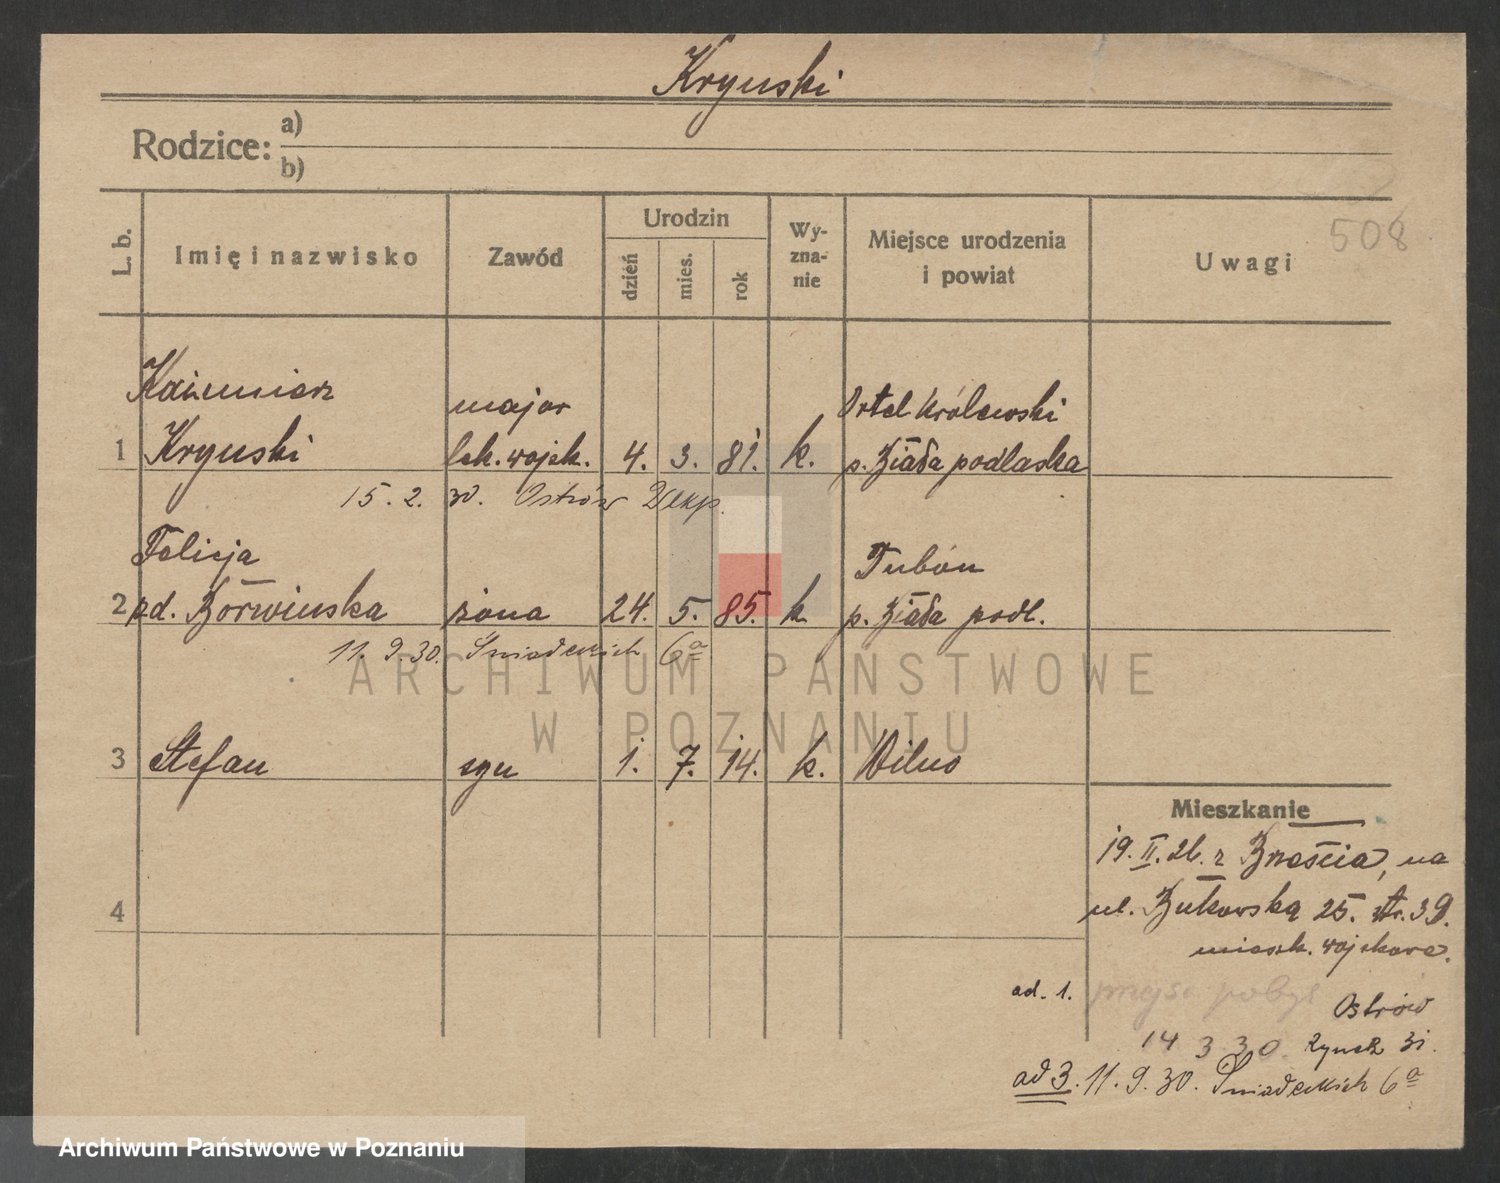 Kryński
Rodzice: a)
b)
508
L. b.
Imię i nazwisko
Zawód
Urodzin
dzień
mies.
rok
Wy-
zna-
nie
Miejsce urodzenia
i powiat
Uwagi
Kazimierz major Ortel Królewski
1 Kryński lek. wojsk. 4. 3. 81. k. p. Biała podlaska
15. 2. 30. Ostrów Wlkp.
Felicja Tubón
2 zd. żona 24. 5. 85. k. p. Biała podl.
11. 9. 30. Śniadeckich 6a
3 Stefan syn 1. 7. 14. k. Wilno
4
Mieszkanie
19. II. 26. z Brześcia, na
ul. Bukowską 25. 39.
mieszk. wojskowe.
ad. 1. Ostrów
14 3 30. Rynek 31.
ad 3. 11. 9. 30. Śniadeckich 6a
ARCHIWUM PAŃSTWOWE
W POZNANIU
Archiwum Państwowe w Poznaniu